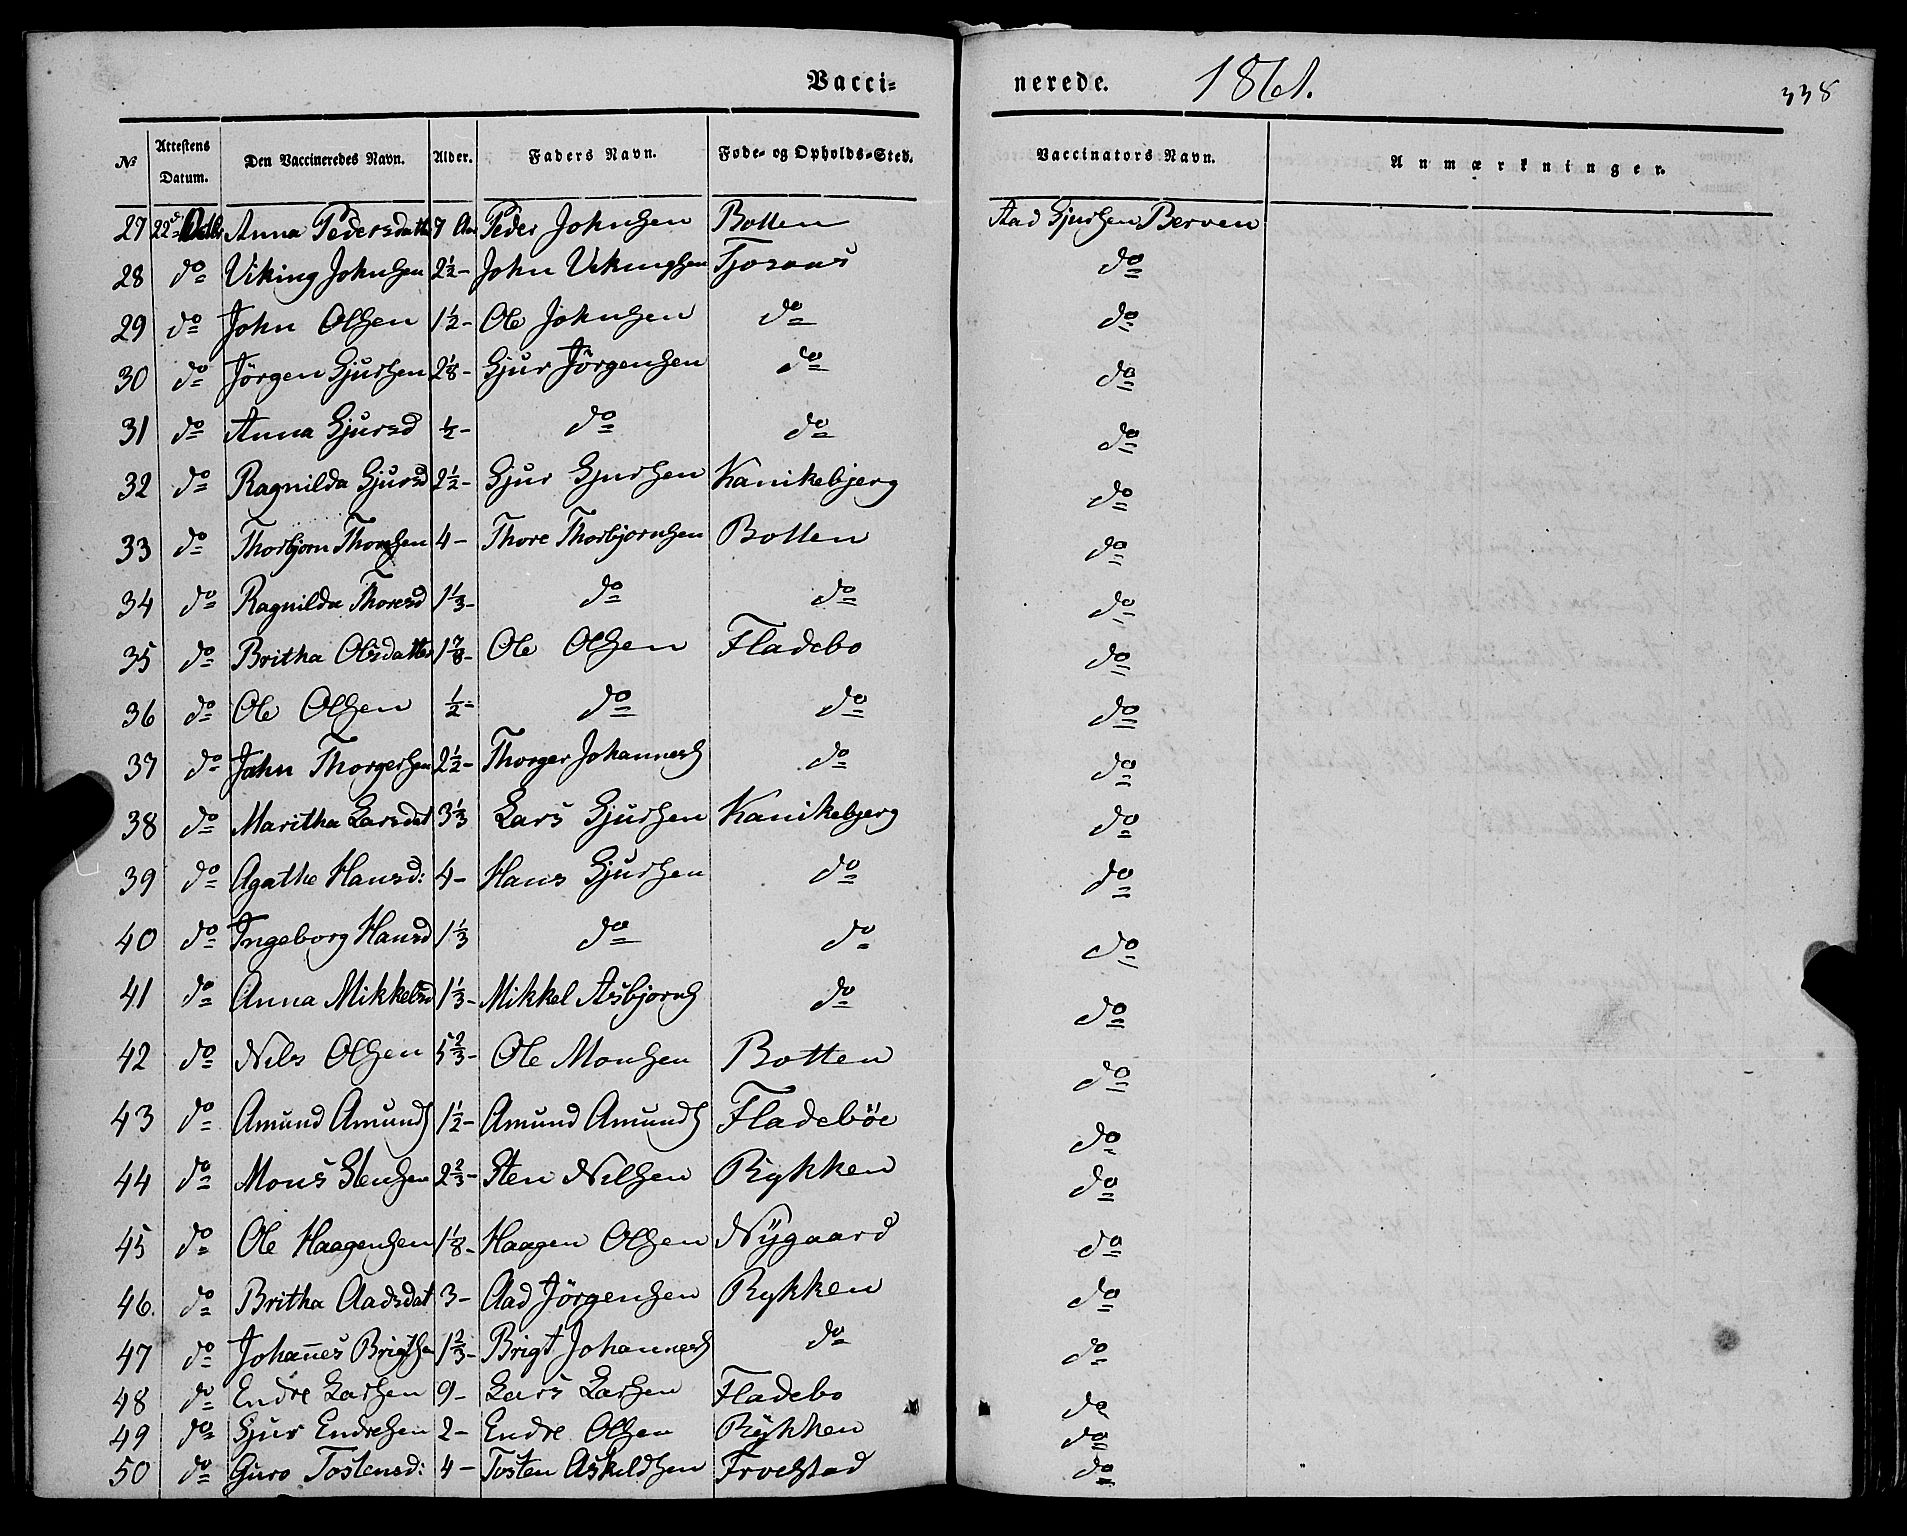 Vacci-nerede. 1861. 338
№ | Attestens Datum. | Den Vaccineredes Navn. | Alder. | Faders Navn. | Føde- og Opholds-Sted. | Vaccinators Navn. | Anmærkninger.
27 22d Octbr Anna Pedersdatter 7 Aar Peder Johnsen Botten Aad Gjursen Berven
28 do Viking Johnsen 2½ - John Vikingsen Tjoraas do
29 do John Olsen 1½ - Ole Johnsen do do
30 do Jörgen Gjursen 2⅛ - Gjur Jörgensen do do
31 do Anna Gjursd ½ - do do do
32 do Ragnilda Gjursd 2½ - Gjur Gjursen Kanikebjerg do
33 do Thorbjørn Thorsen 4 - Thore Thorbjornsen Botten do
34 do Ragnilda Thoresd 1⅓ - do do do
35 do Britha Olsdatter 1⅞ - Ole Olsen Fladebo do
36 do Ole Olsen ½ - do do do
37 do John Thorgersen 2½ - Thorger Johannes do do
38 do Maritha Larsdat 3⅓ Lars Gjursen Kanikebjerg do
39 do Agathe Hansd: 4 - Hans Gjursen do do
40 do Ingeborg Hansd 1⅓ do do do
41 do Anna Mikkelsd 1⅓ - Mikkel Asbjorns do do
42 do Nils Olsen 5⅔ - Ole Monsen Botten do
43 do Amund Amunds 1½ - Amund Amunds Fladeböe do
44 do Mons Stensen 2⅔ - Sten Nilsen Rykken do
45 do Ole Haagensen 1⅛ - Haagen Olsen Nÿgaard do
46. do Britha Aadsdat 3 - Aad Jörgensen Rykken do
47 do Johan̄es Brigtsen 1⅔ - Brigt Johannes do do
48 do Endre Larsen 9 - Lars Larsen Fladebo do
49 do Gjur Endresen 2 - Endre Olsen Rÿkken do
50 do Guro Tostensd: 4 - Tosten Askeldsen Froestad do